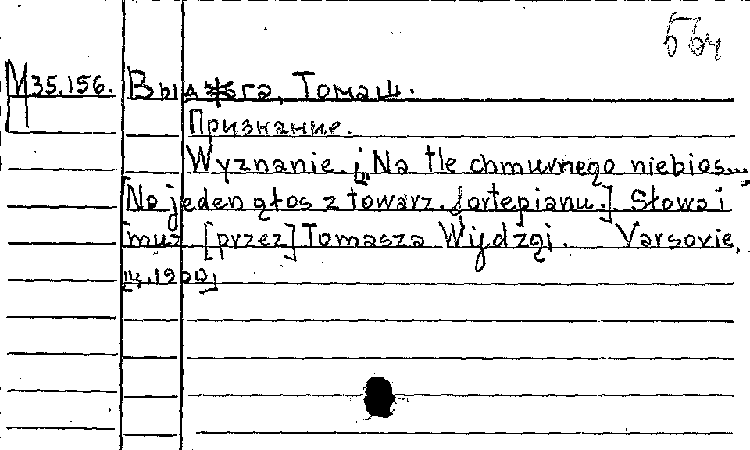 564
M35.156. Выджга, Томаш.
Признание.
Wyznanie. ["Na tle chmurnego niebios..."
[Na jeden głos z towarz. fortepianu.] Słowa i
muz [przez] Tomasza Wijdżgi. Varsovie,
1900]